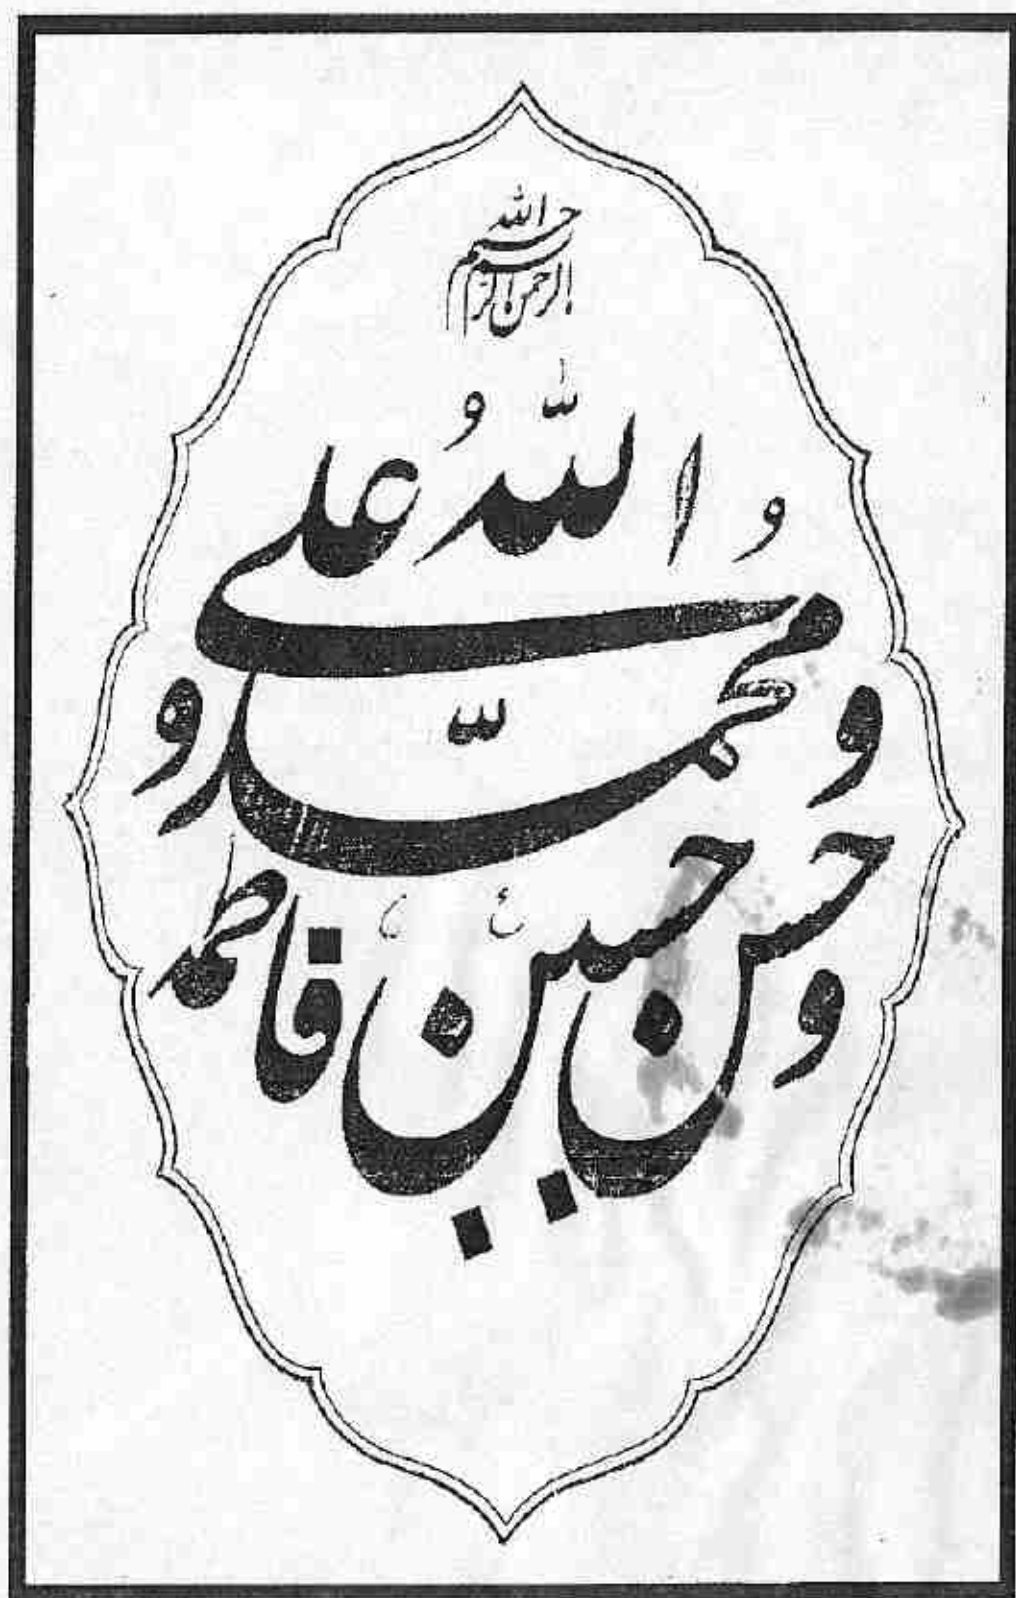 بسم الله الرحمن الرحيم
و الله و علی
و محمد و
و حسن حسین فاطمه